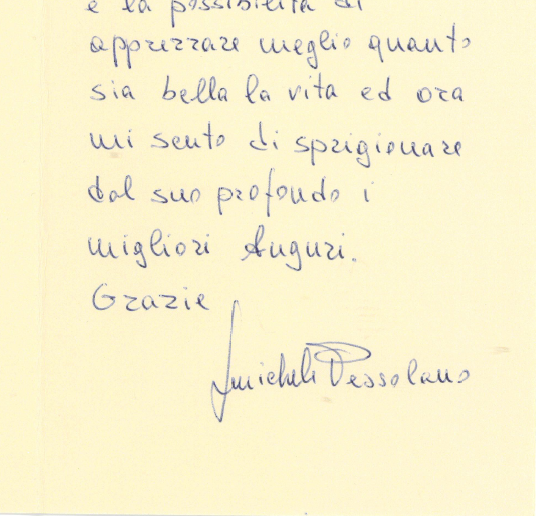 e la possibilità di
apprezzare meglio quanto
sia bella la vita ed ora
mi sento di sprigionare
dal suo profondo i
migliori Auguri.
Grazie
Pessolano